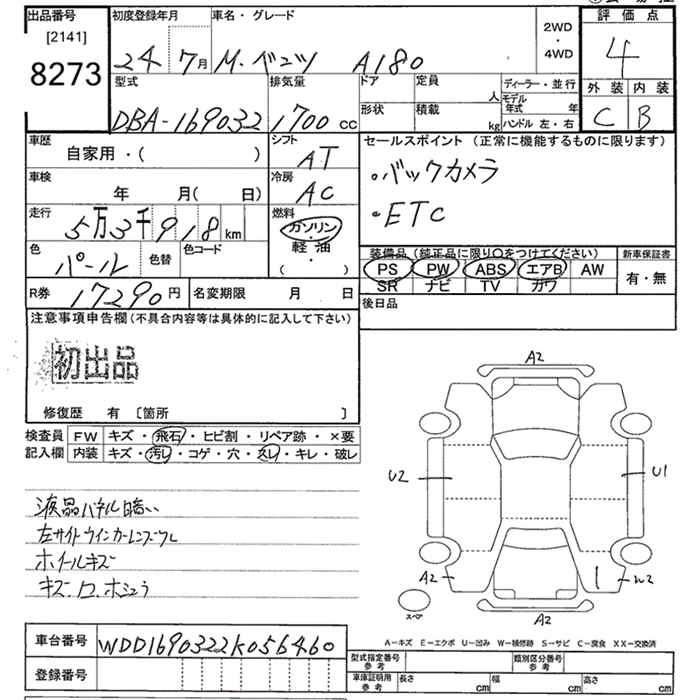 出品番号
[2141]
8273
初度登録年月
24 7月
車名・グレード
M.ベンツ A180
2WD
・
4WD
評価点
4
外装 内装
C B
型式
DBA-169032
排気量
1700 CC
ドア 定員 人
形状 積載 kg
ディーラー・並行
モデル年式 年
ハンドル 左・右
車歴
自家用・( )
シフト
AT
車検
年 月( 日)
冷房
AC
走行
5万3千918 km
燃料
ガソリン
軽・油
( )
色
パール
色替
色コード
R券 17290円
名変期限 月 日
セールスポイント (正常に機能するものに限ります)
・バックカメラ
・ETC
装備品 (純正品に限り○をつけてください)
PS PW ABS エアB AW
SR ナビ TV カワ
新車保証書
有・無
後日品
注意事項申告欄(不具合内容等は具体的に記入して下さい)
初出品
修復歴 有 [箇所 ]
検査員
記入欄
FW キズ・飛石・ヒビ割・リペア跡・×要
内装 キズ・汚し・コゲ・穴・スレ・キレ・破レ
液晶パネル暗い
左サイドウインカーレンズワレ
ホイールキズ
キズ
A2
U2
U1
A2
W2
A2
スペア
A-キズ E-エクボ U-凹み W-補修跡 S-サビ C-腐食 XX-交換済
車台番号 WDD1690322K056460
登録番号
型式指定番号
参考
類別区分番号
参考
車庫証明用
参考
長さ cm 幅 cm 高さ cm